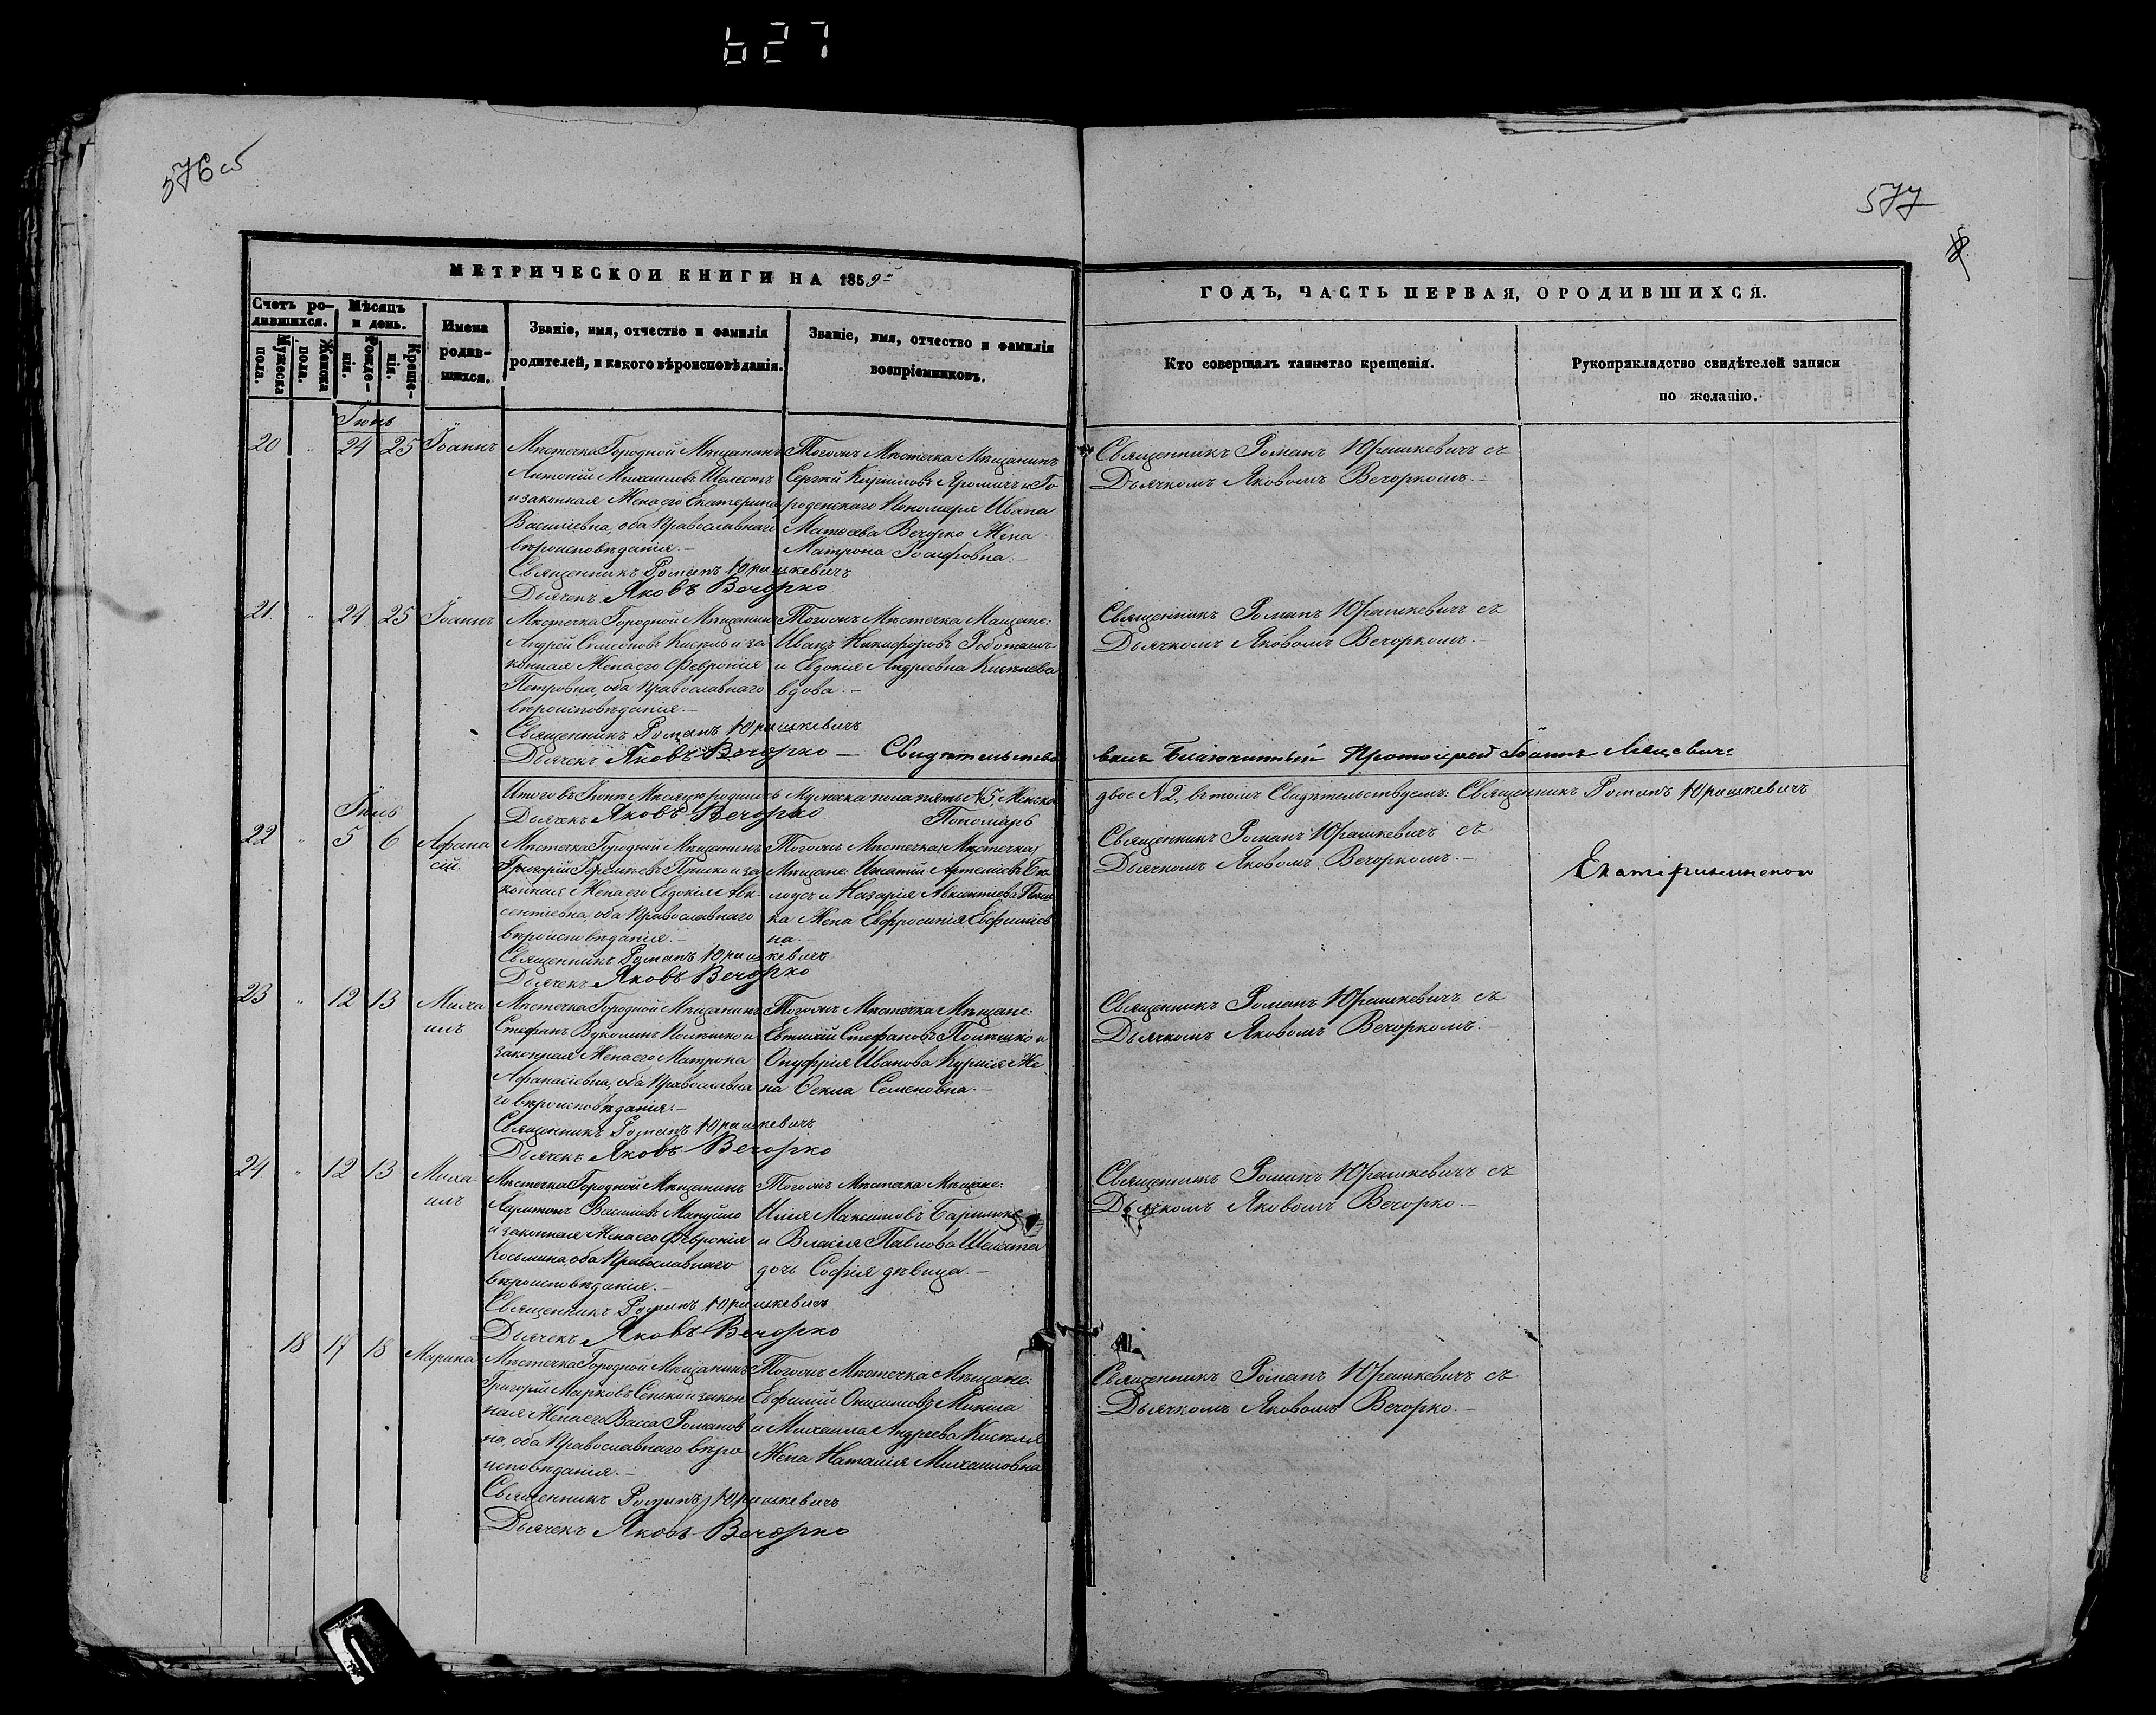 627
576 об
577
МЕТРИЧЕСКОЙ КНИГИ НА 1859й
Счетъ ро-
дившихся.
Мѣсяцъ
и день.
Мужеска
пола.
Женска
пола.
Рожде-
нія.
Креще-
нія.
Имена
родив-
шихся.
Званіе, имя, отчество и фамилія
родителей, и какого вѣроисповѣданія.
Званіе, имя, отчество и фамилія
воспріемниковъ.
ГОДЪ, ЧАСТЬ ПЕРВАЯ, О РОДИВШИХСЯ.
Кто совершалъ таинство крещенія.
Рукоприкладство свидѣтелей записи
по желанію.
Іюнь
20 " 24 25 Іоаннъ
Мѣстечка Городной Мѣщанинъ
Антоній Михаиловъ Шелестъ
и законная Жена его Екатерина
Василіевна, оба Православнаго
вѣроисповѣданія.-
Тогожъ Мѣстечка Мѣщанинъ
Сергѣй Кириловъ Яромичъ и Го
роденскаго Пономаря Ивана
Матѳеева Вечорко Жена
Матрона Іосифовна.-
Священникъ Романъ Юрашкевичъ
Дьячекъ Яковъ Вечорко
Священникъ Романъ Юрашкевичъ съ
Дьячкомъ Яковомъ Вечоркомъ.-
21. " 24 25 Іоаннъ
Мѣстечка Городной Мѣщанинъ
Андрей Симеоновъ Кисель и за
конная Жена его Февронія
Петровна, оба Православнаго
вѣроисповѣданія.-
Тогожъ Мѣстечка Мѣщане:
Иванъ Никифоровъ
и Евдокія Андреевна
вдова.-
Священникъ Романъ Юрашкевичъ
Дьячекъ Яковъ Вечорко — Свидѣтельство
Священникъ Романъ Юрашкевичъ съ
Дьячкомъ Яковомъ Вечоркомъ.-
валъ Благочинный Протоіерей Іоаннъ
Итого въ Іюнѣ Мѣсяцѣ родилось Мужеска пола пять №5, Женска
двое №2, въ томъ Свидѣтельствуемъ: Священникъ Романъ Юрашкевичъ
Дьячекъ Яковъ Вечорко Пономарь
Іюль
22 " 5 6 Афана
сій.
Мѣстечка Городной Мѣщанинъ
Григорій и за
конная Жена его Евдокія Авк-
сентіевна, оба Православнаго
вѣроисповѣданія.-
Тогожъ Мѣстечка Мѣстечка
Мѣщане: Игнатій Артеміевъ Бѣ-
лоусъ и Назарія Авксентіева
ка Жена Евфросинія Евфиміев
на.-
Священникъ Романъ Юрашкевичъ
Дьячекъ Яковъ Вечорко
Священникъ Романъ Юрашкевичъ съ
Дьячкомъ Яковомъ Вечоркомъ.-
23 " 12 13 Миха
илъ
Мѣстечка Городной Мѣщанинъ
Стефанъ и
законная Жена его Матрона
Афанасіевна, оба Православна
го вѣроисповѣданія.-
Тогожъ Мѣстечка Мѣщане:
Евтихій Стефановъ и
Онуфрія Иванова Же
на Ѳекла Семеновна.-
Священникъ Романъ Юрашкевичъ
Дьячекъ Яковъ Вечорко
Священникъ Романъ Юрашкевичъ съ
Дьячкомъ Яковомъ Вечоркомъ.-
24. " 12 13 Миха
илъ
Мѣстечка Городной Мѣщанинъ
Харитонъ Василіевъ Мануйло
и законная Жена его Февронія
Косьмина, оба Православнаго
вѣроисповѣданія.-
Тогожъ Мѣстечка Мѣщане:
Илія Максимовъ
и Власія Павлова Шелеста
дочь Софія дѣвица.-
Священникъ Романъ Юрашкевичъ
Дьячекъ Яковъ Вечорко
Священникъ Романъ Юрашкевичъ съ
Дьячкомъ Яковомъ Вечорко.-
" 18 17 18 Марина
Мѣстечка Городной Мѣщанинъ
Григорій Марковъ и закон
ная Жена его Васса Романов
на, оба Православнаго вѣро
исповѣданія.-
Тогожъ Мѣстечка Мѣщане:
Евфимій Онисимовъ
и Михаила Андреева Киселя
Жена Наталія Михаиловна
Священникъ Романъ Юрашкевичъ
Дьячекъ Яковъ Вечорко
Священникъ Романъ Юрашкевичъ съ
Дьячкомъ Яковомъ Вечорко.-